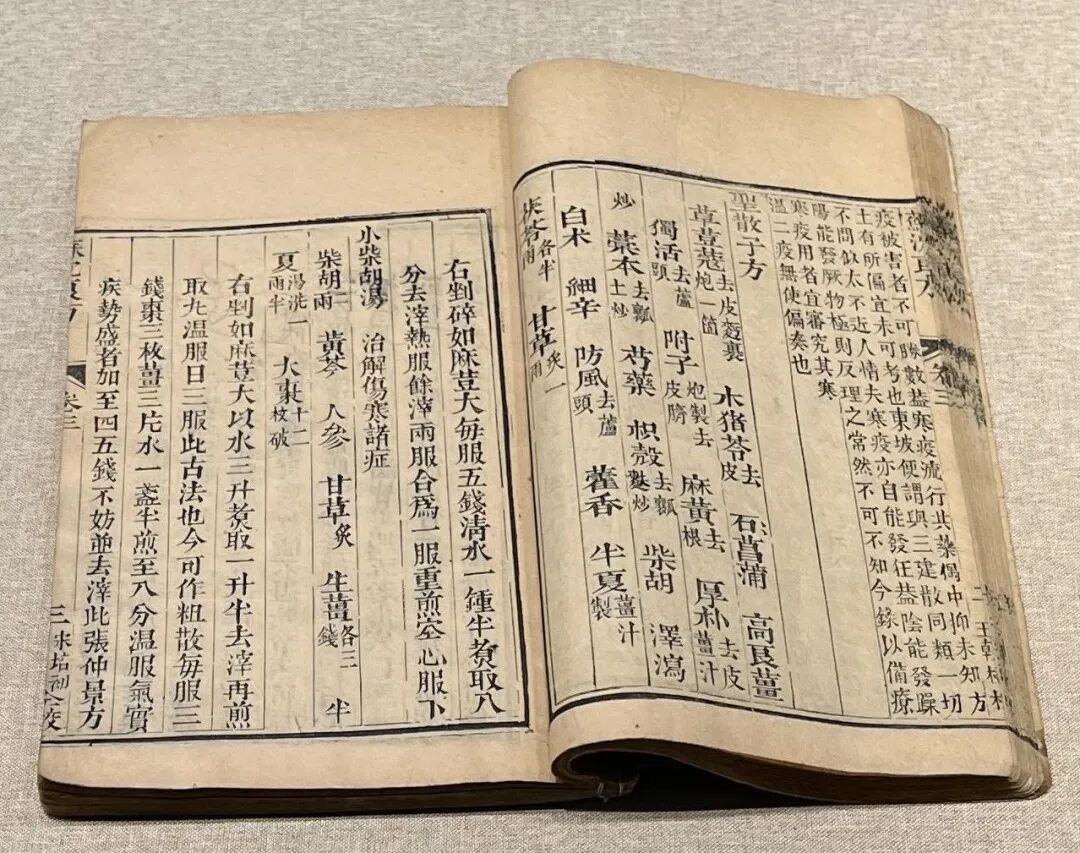 卷三
疫被害者不可勝數葢寒疫流行其藥偶中抑未知方
土有所偏宜未可考也東坡便謂與三建散同類一切
不問似太不近人情夫寒疫亦自能發狂葢陰能發躁
陽能發厥物極則反理之常然不可不知今錄以備療
寒疫用者宜審究其寒
温二疫無使偏奏也
聖散子方
草荳蔻去皮麪裹炮一箇 木猪苓去皮 石菖蒲 高良薑
獨活去蘆頭 附子炮製去皮臍 麻黃去根 厚朴去皮薑汁
炒 藁本去瓤土炒 芍藥 枳殻去瓤麩炒 柴胡 澤瀉
白术 細辛 防風去蘆頭 藿香 半夏薑汁製
茯苓各半兩 甘草炙一兩
右剉碎如麻荳大每服五錢清水一鍾半煑取八
分去滓熱服餘滓兩服合爲一服重煎空心服下
小柴胡湯 治解傷寒諸症
柴胡二兩 黃芩 人參 甘草炙 生薑各三錢 半
夏湯洗一兩半 大棗十二枚破
右剉如麻荳大以水三升煑取一升半去滓再煎
取九温服日三服此古法也今可作粗散每服三
錢棗三枚薑三片水一盞半煎至八分温服氣實
疾勢盛者加至四五錢不妨並去滓此張仲景方
卷三 三